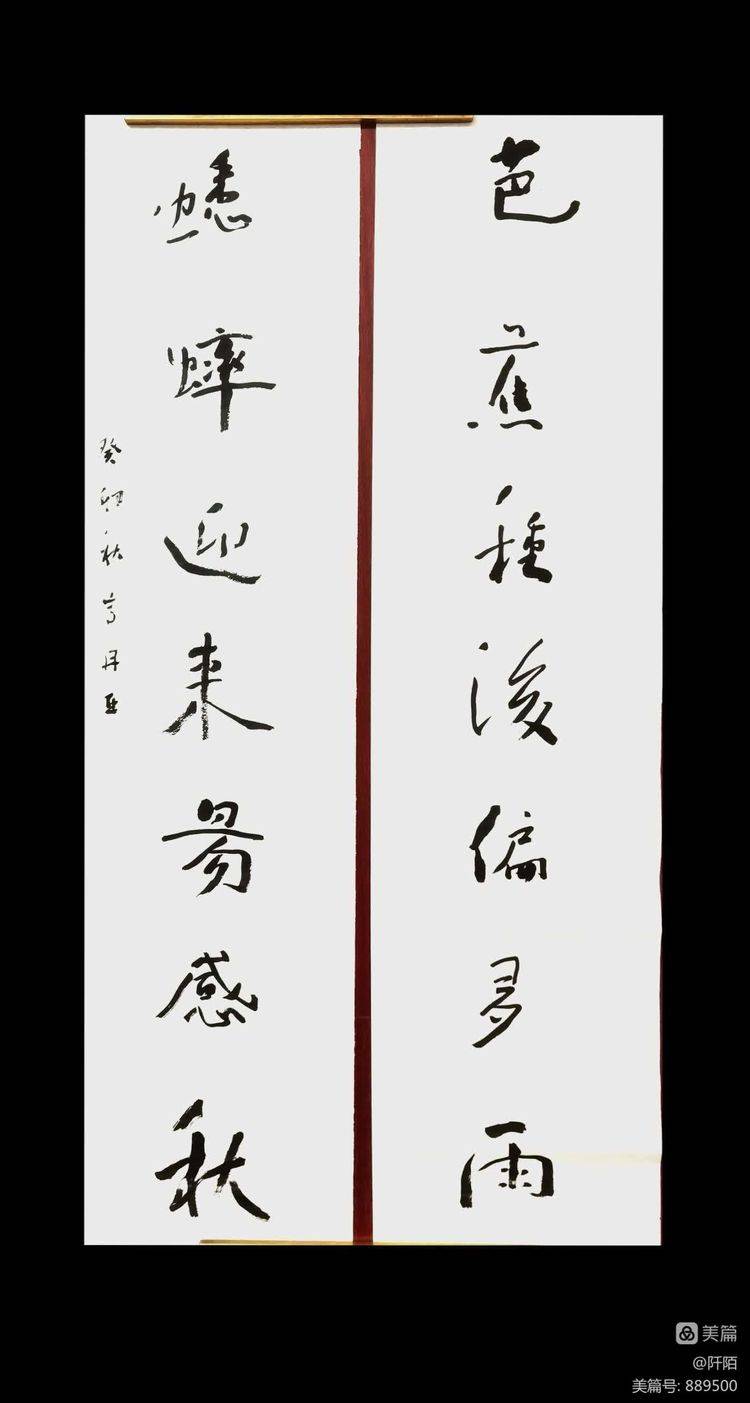 芭蕉種後偏多雨
蟋蟀迎来易感秋
癸卯秋
美篇
@阡陌
美篇号: 889500